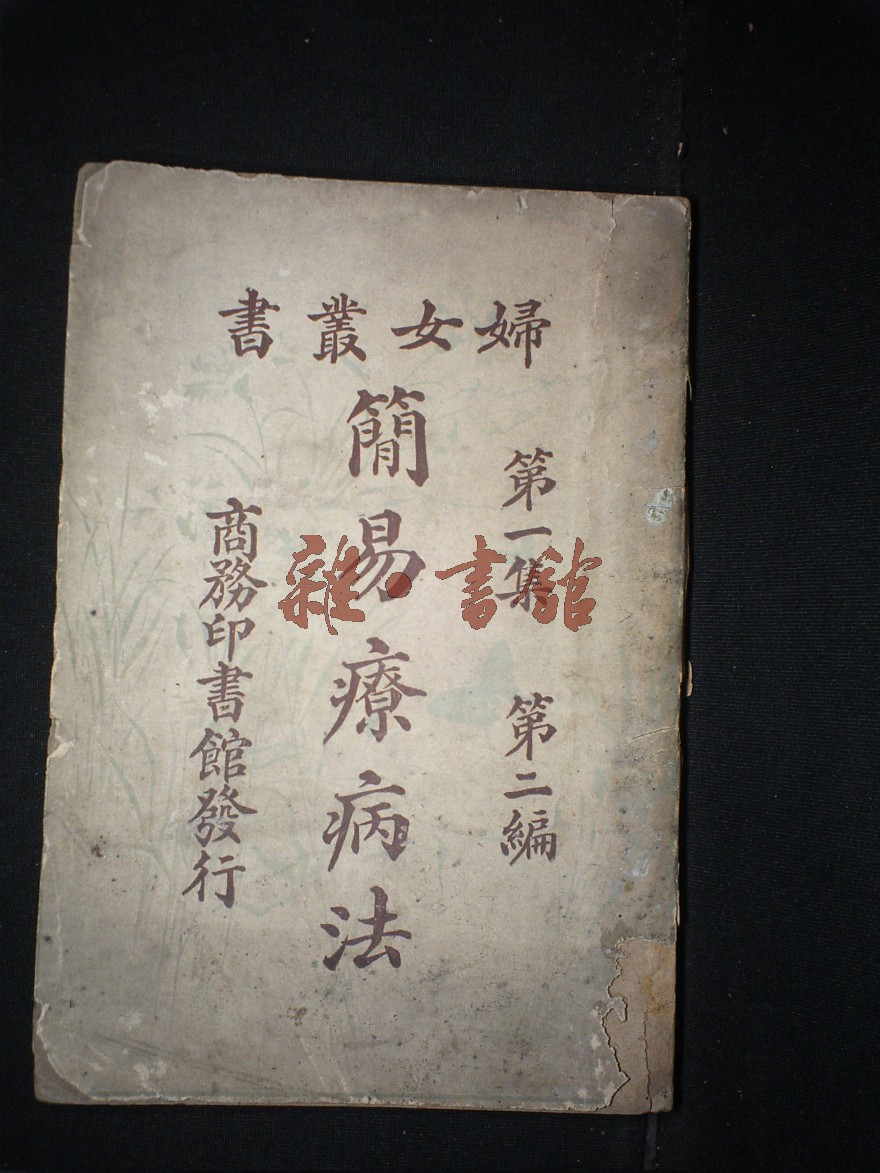 婦女叢書
第一集 第二編
簡易療病法
商務印書館發行
雜·書館